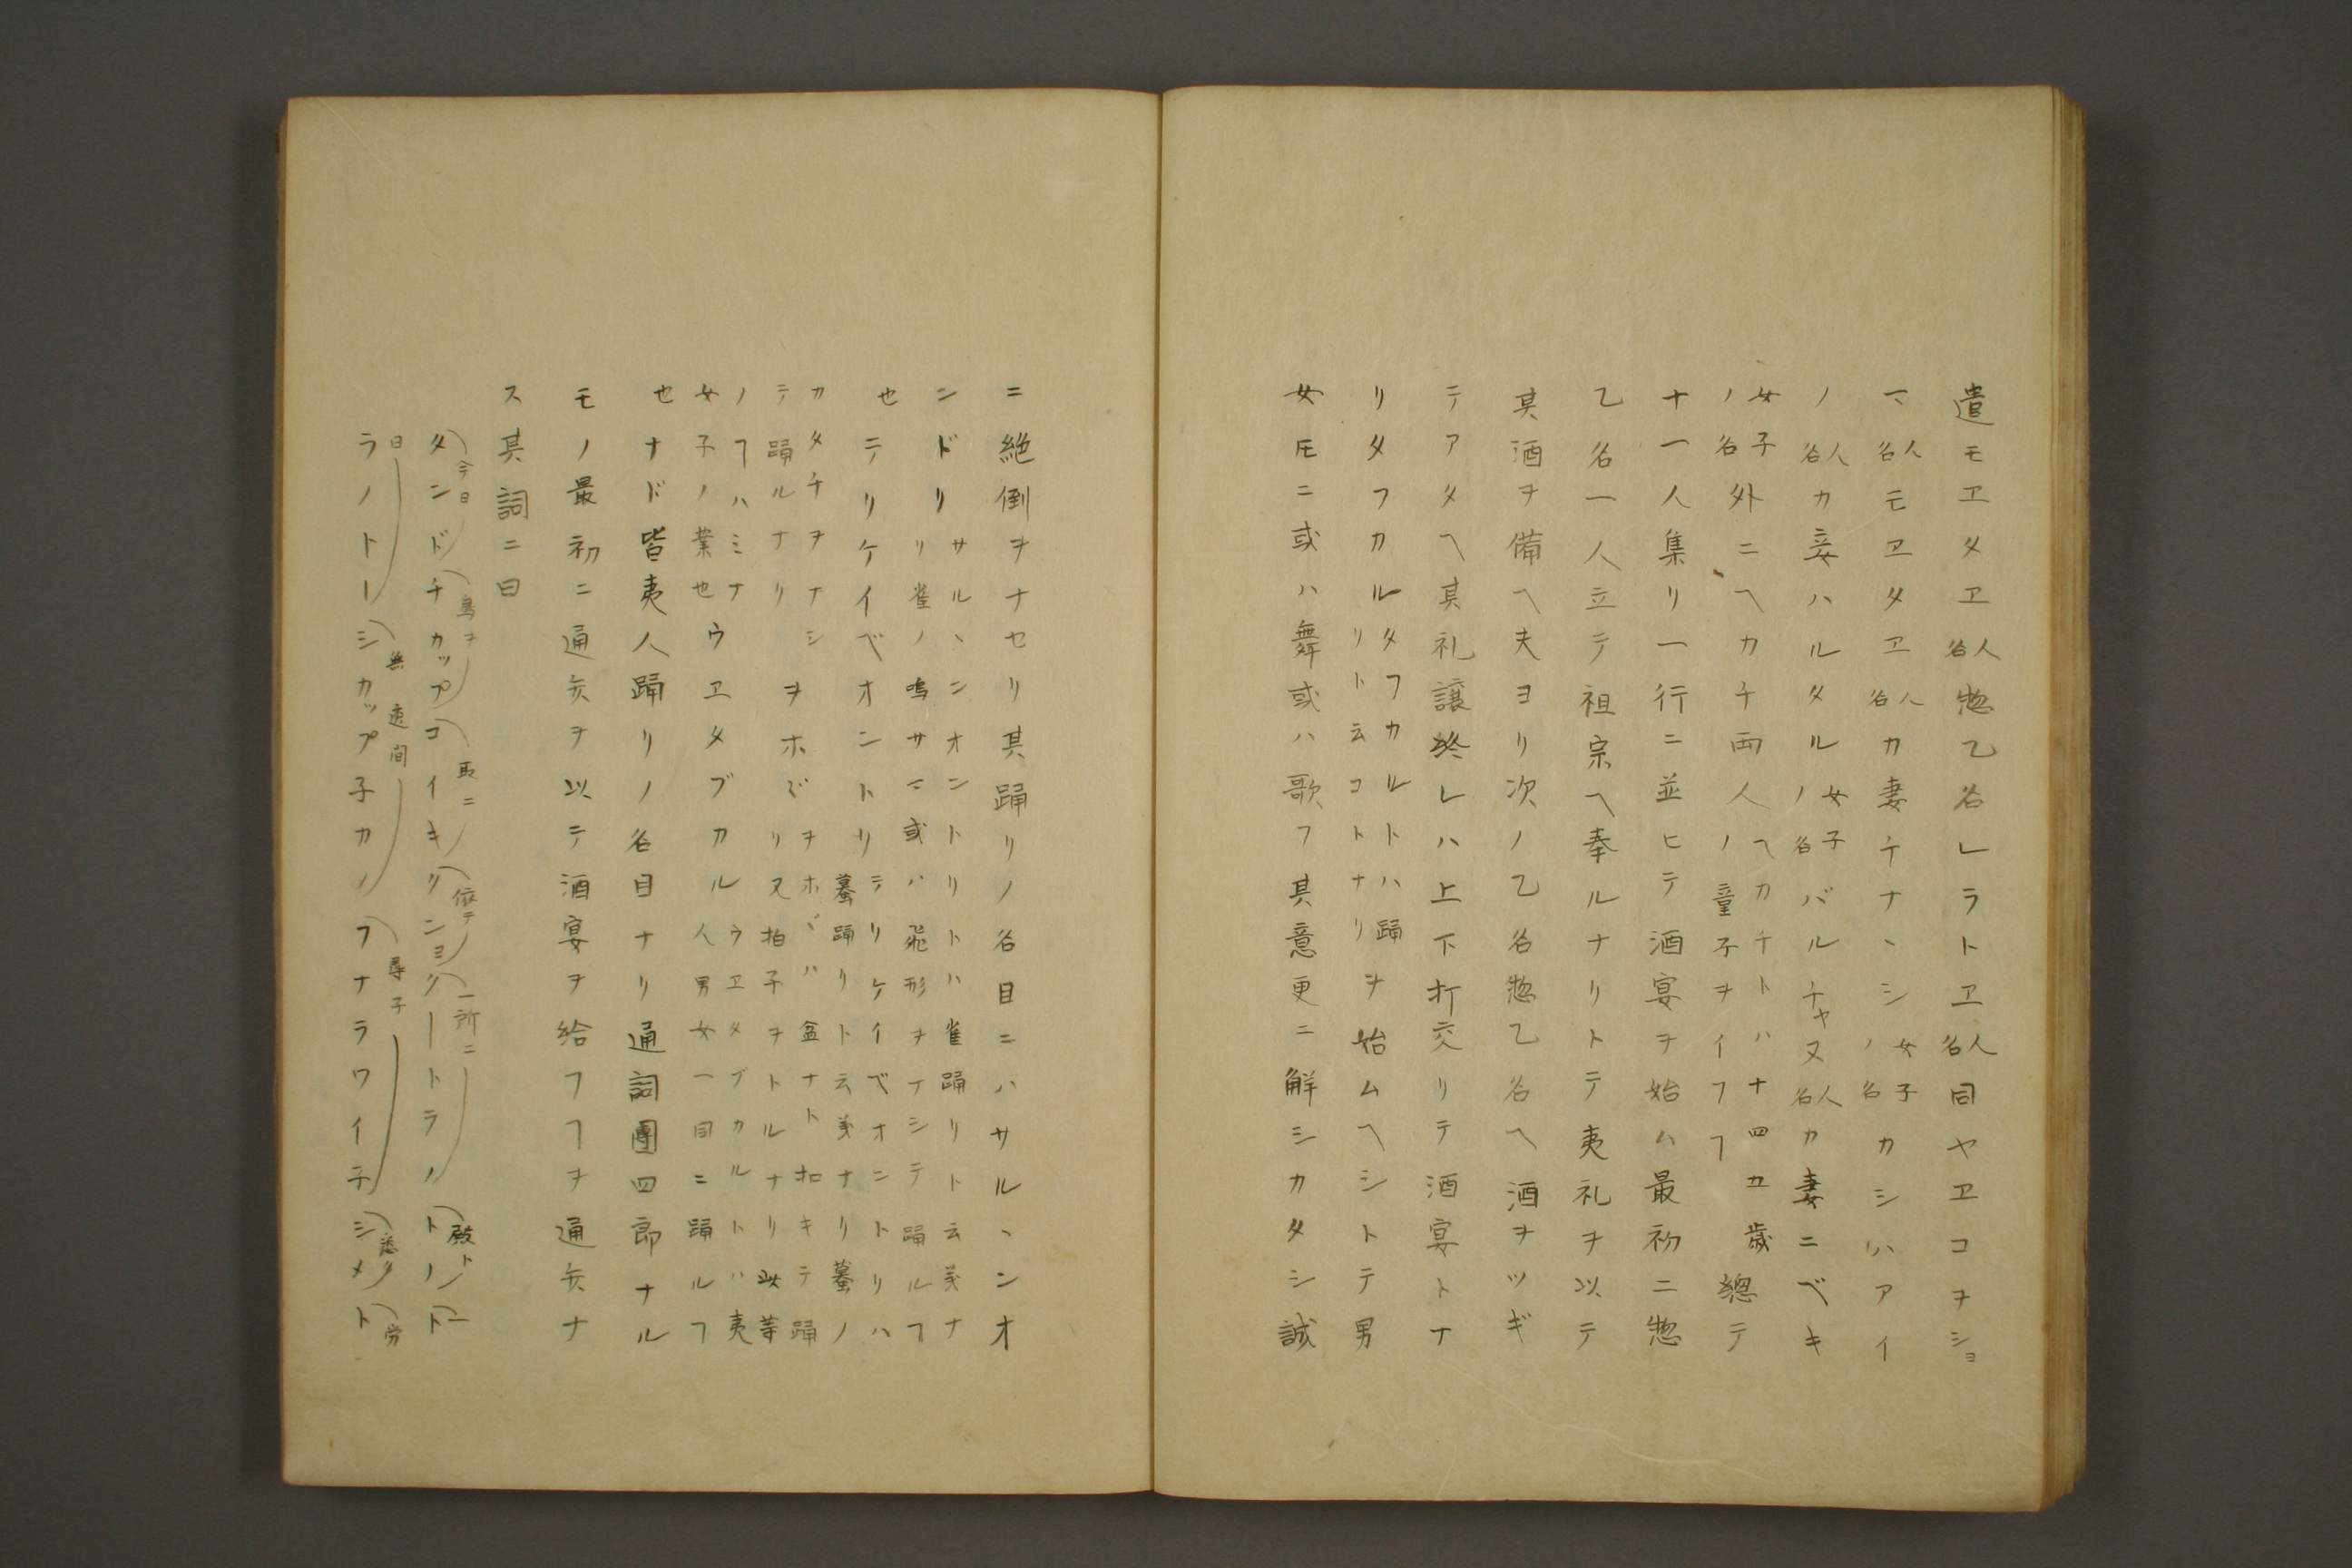 遣モヱタヱ人名惣乙名レラトヱ人名同ヤヱコヲショ
マ人名モヱタヱ人名カ妻チナヽシ女子ノ名カシハアイ
ノ人名カ妾ハルタル女子ノ名バルチャヌ人名カ妻ニベキ
女子ノ名外ニヘカチ両人ヘカチトハ十四五歳ノ童子ヲイフヿ總テ
十一人集リ一行ニ並ヒテ酒宴ヲ始ム最初ニ惣
乙名一人立テ祖宗ヘ奉ルナリトテ夷礼ヲ以テ
其酒ヲ備ヘ夫ヨリ次ノ乙名惣乙名ヘ酒ヲツギ
テアタヘ其礼譲終レハ上下打交リテ酒宴トナ
リタフカルタフカルトハ踊リト云コトナリヲ始ムヘシトテ男
女圧ニ或ハ舞或ハ歌フ其意更ニ解シカタシ誠
ニ絶倒ヲナセリ其踊リノ名目ニハサルヽンオ
ンドリサルヽンオントリトハ雀踊リト云義ナリ雀ノ鳴サマ或ハ飛形ヲナシテ踊ルヿ
也テリケイベオントリテリケイベオントリハ蟇踊リト云義ナリ蟇ノ
カタチヲナシテ踊ルナリヲホヾリヲホヾハ盆ナト扣キテ踊リ又拍子ヲトルナリ此等
ノヿハミナ女子ノ業也ウヱタブカルウヱタブカルトハ夷人男女一同ニ踊ルヿ
也ナド皆夷人踊リノ名目ナリ通詞團四郎ナル
モノ最初ニ通亥ヲ以テ酒宴ヲ給フヿヲ通亥ナ
ス其詞ニ曰
今日 鳥ヲ 取ニ 依テ 一所ニ 殿ト
タンドチカップコイキリンヨクートラノトノト
日 無 透間 尋子 悉ク 労
ラノトーシカップ子カノフナラワイテシメト